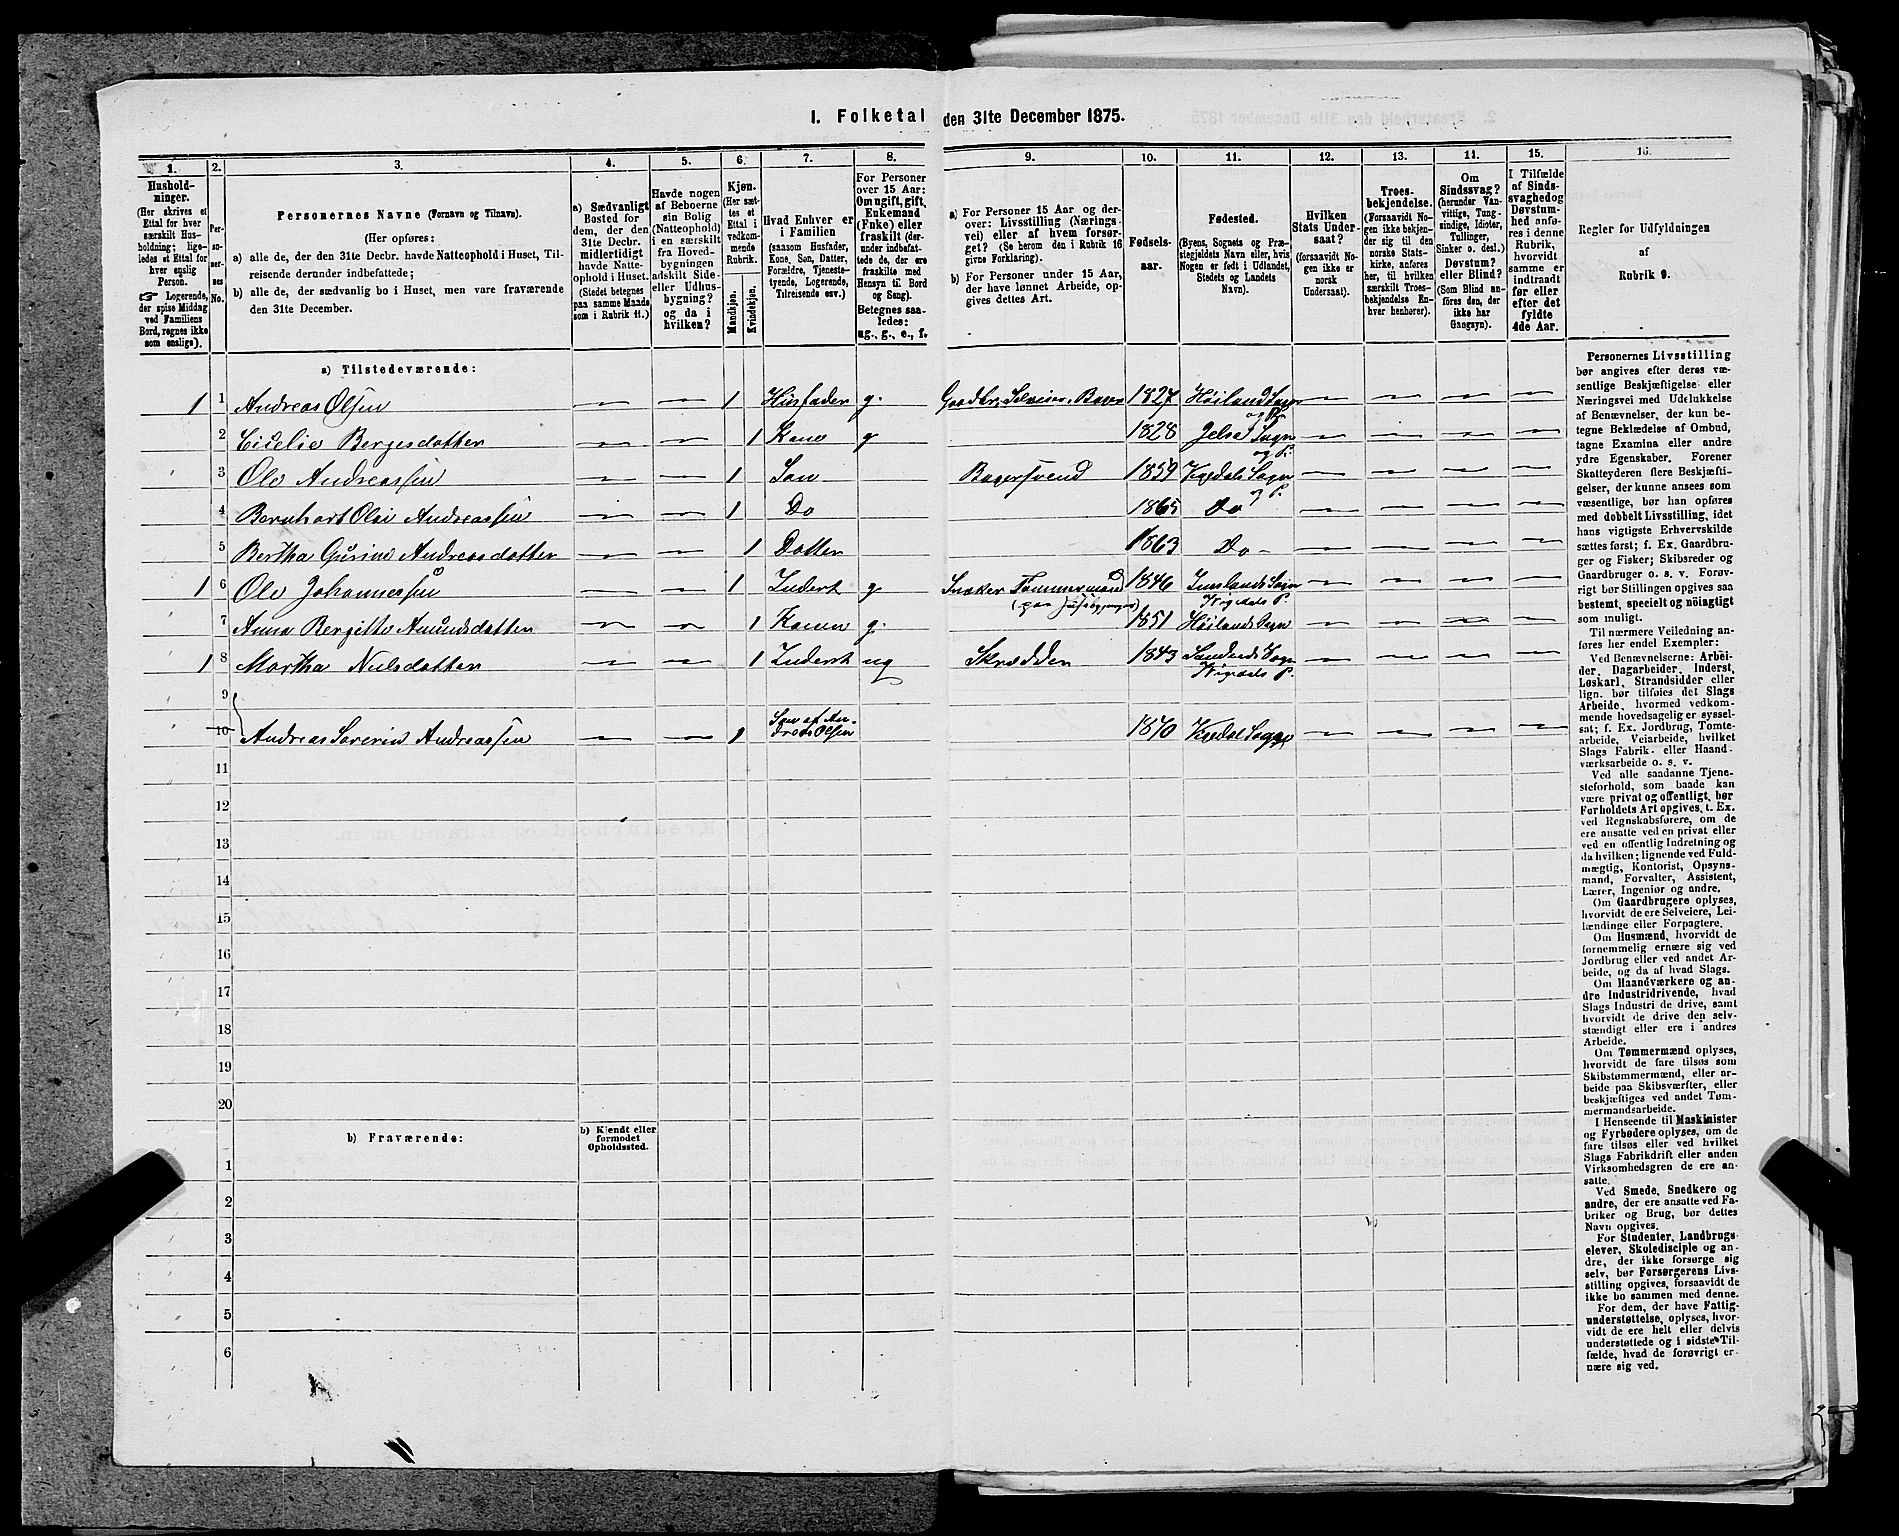 1. Folketal den 31te December 1875.
1.
2.
3.
4.
5.
6.
7.
8.
9.
10.
11.
12.
13.
14.
15.
16.
Husholdninger.
(Her skrives et Ettal for hver særskilt Husholdning; ligeledes et Ettal for hver enslig Person.
☞ Logerende, der spise Middag ved Familiens Bord, regnes ikke som enslige).
Personernes No.
Personernes Navne (Fornavn og Tilnavn).
(Her opføres:
a) alle de, der den 31te Decbr. havde Natteophold i Huset, Tilreisende derunder indbefattede;
b) alle de, der sædvanlig bo i Huset, men vare fraværende den 31te December.
a) Sædvanligt Bosted for dem, der den 31te Decbr. midlertidigt havde Natteophold i Huset. (Stedet betegnes paa samme Maade som i Rubrik 11.)
Havde nogen af Beboerne sin Bolig (Natteophold) i en særskilt fra Hovedbygningen adskilt Side- eller Udhusbygning? og da i hvilken?
Kjøn.
(Her sættes et Ettal i vedkommende Rubrik.
Mandkjøn.
Kvindekjøn.
Hvad Enhver er i Familien
(saasom Husfader, Kone, Søn, Datter, Forældre, Tjenestetyende, Logerende, Tilreisende osv.)
For Personer over 15 Aar: Om ugift, gift, Enkemand (Enke) eller fraskilt (derunder indbefattede de, der ere fraskilte med Hensyn til Bord og Seng). Betegnes saaledes: ug., g., e., f.
a) For Personer 15 Aar og derover: Livsstilling (Næringsvei) eller af hvem forsørget? (Se herom den i Rubrik 16 givne Forklaring).
b) For Personer under 15 Aar, der have lønnet Arbeide, opgives dettes Art.
Fødselsaar.
Fødested.
(Byens, Sognets og Præstegjeldets Navn eller, hvis Nogen er født i Udlandet, Stedets og Landets Navn).
Hvilken Stats Undersaat?
(forsaavidt Nogen ikke er norsk Undersaat).
Troesbekjendelse.
(Forsaavidt Nogen ikke bekjender sig til den norske Statskirke, anføres her, til hvilken særskilt Troesbekjendelse Enhver henhører).
Om Sindssvag? (herunder Vanvittige, Tungsindige, Idioter, Tullinger, Sinker o. desl.) Døvstum? eller Blind? (Som Blind anføres den, der ikke har Gangsyn).
I Tilfælde af Sindssvaghed og Døvstumhed anføres i denne Rubrik, hvorvidt samme er indtraadt før eller efter det fyldte 4de Aar.
Regler for Udfyldningen af Rubrik 9.
a) Tilstedeværende:
1 1 Andreas Olsen — — 1 Husfader g. Gaardbr. Selveier, Bager 1827 Høiland Sogn og P. — — — —
2 Cicelie Bergesdatter — — 1 Kone g 1828 Jelsø Sogn og P. — — — —
3 Ole Andreassen — — 1 Søn Bagersvend 1859 Vigedals Sogn og P. — — — —
4 Bernhart Olai Andreassen — — 1 Do 1865 Do — — — —
5 Bertha Gurine Andreasdatter — — 1 Datter 1863 Do — — — —
1 6 Ole Johannessen — — 1 Inderst g Snekker Tømmermand 1846 Imslands Sogn Vigedals P. — — — —
7 Anna Bergitte Amundsdatter — — 1 Konen g. 1851 Høilands Sogn — — — —
1 8 Martha Nilsdatter — — 1 Inderst ug Skrædder 1843 Sandeids Sogn Vigedals P. — — — —
9
10 Andreas Severin Andreassen — — 1 Søn af Andreas Olsen 1870 Vigedal Sogn — — — —
11
12
13
14
15
16
17
18
19
20
b) Fraværende:
b) Kjendt eller formodet Opholdssted.
1
2
3
4
5
6
Personernes Livsstilling
bør angives efter deres væ-
sentlige Beskjæftigelse eller
Næringsvei med Udelukkelse
af Benævnelser, der kun be-
tegne Beklædelse af Ombud,
tagne Examina eller andre
ydre Egenskaber. Forener
Skatteyderen flere Beskjæfti-
gelser, der kunne ansees som
væsentlige, bør han opføres
med dobbelt Livsstilling, idet
hans vigtigste Erhvervskilde
sættes først; f. Ex. Gaardbru-
ger og Fisker; Skibsreder og
Gaardbruger o. s. v. Forøv-
rigt bør Stillingen opgives saa
bestemt, specielt og nöiagtigt
som muligt.
Til nærmere Veiledning an-
føres her endel Exempler:
Ved Benævnelserne: Arbei-
der, Dagarbeider, Inderst,
Løskarl, Strandsidder eller
lign. bør tilføies det Slags
Arbeide, hvormed vedkom-
mende hovedsagelig er syssel-
sat; f. Ex. Jordbrug, Tomte-
arbeide, Veiarbeide, hvilket
Slags Fabrik- eller Haand-
værksarbeide o. s. v.
Ved alle saadanne Tjene-
steforhold, som baade kan
være privat og offentligt, bør
Forholdets Art opgives, t. Ex.
ved Regnskabsførere, om de
ere ansatte ved en privat eller
ved en offentlig Indretning og
da hvilken; lignende ved Fuld-
mægtig, Kontorist, Opsyns-
mand, Forvalter, Assistent,
Lærer, Ingeniør og andre.
Om Gaardbrugere oplyses,
hvorvidt de ere Selveiere, Lei-
lændinge eller Forpagtere.
Om Husmænd, hvorvidt de
fornemmelig ernære sig ved
Jordbrug eller ved andet Ar-
beide, og da af hvad Slags.
Om Haandværkere og an-
dre Industridrivende, hvad
Slags Industri de drive, samt
hvorvidt de drive den selv-
stændigt eller ere i andres
Arbeide.
Om Tømmermænd oplyses,
hvorvidt de fare tilsøs som
Skibstømmermænd, eller ar-
beide paa Skibsværfter, eller
beskjæftiges ved andet Tøm-
mermandsarbeide.
I Henseende til Maskinister
og Fyrbødere oplyses, om de
fare tilsøs eller ved hvilket
Slags Fabrikdrift eller anden
Virksomhedsgren de ere an-
satte.
Ved Smede, Snedkere og
andre, der ere ansatte ved Fa-
briker og Brug, bør dettes
Navn opgives.
For Studenter, Landbrugs-
elever, Skoledisciple og an-
dre, der ikke forsørge sig
selv, bør Forsørgerens Livs-
stilling opgives, forsaavidt de
ikke bo sammen med denne.
For dem, der have Fattig-
understøttelse, oplyses, hvor-
vidt de ere helt eller delvis
understøttede og i sidste Til-
fælde, hvad de forøvrigt er-
nære sig ved.